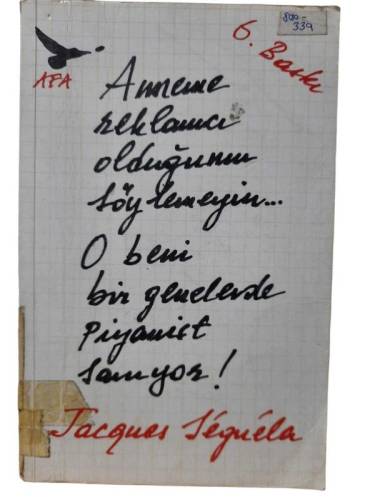 800-
339
6. Baskı
AFA
Anneme
reklamcı
olduğumu
söylemeyin...
O beni
bir genelevde
piyanist
sanıyor!
Jacques Séguéla